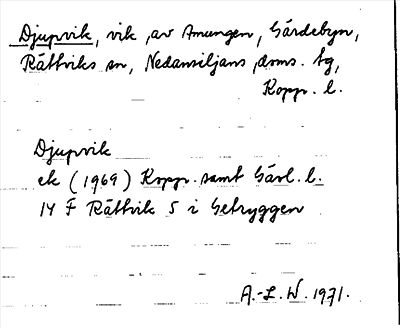 Djupvik, vik av Amungen, Gärdebyn,
Rättviks sn, Nedansiljans doms. tg,
Kopp. l.
Djupvik
ek (1969) Kopp. samt Gävl. l.
14 F Rättvik S i Getryggen
A.-L. W. 1971.